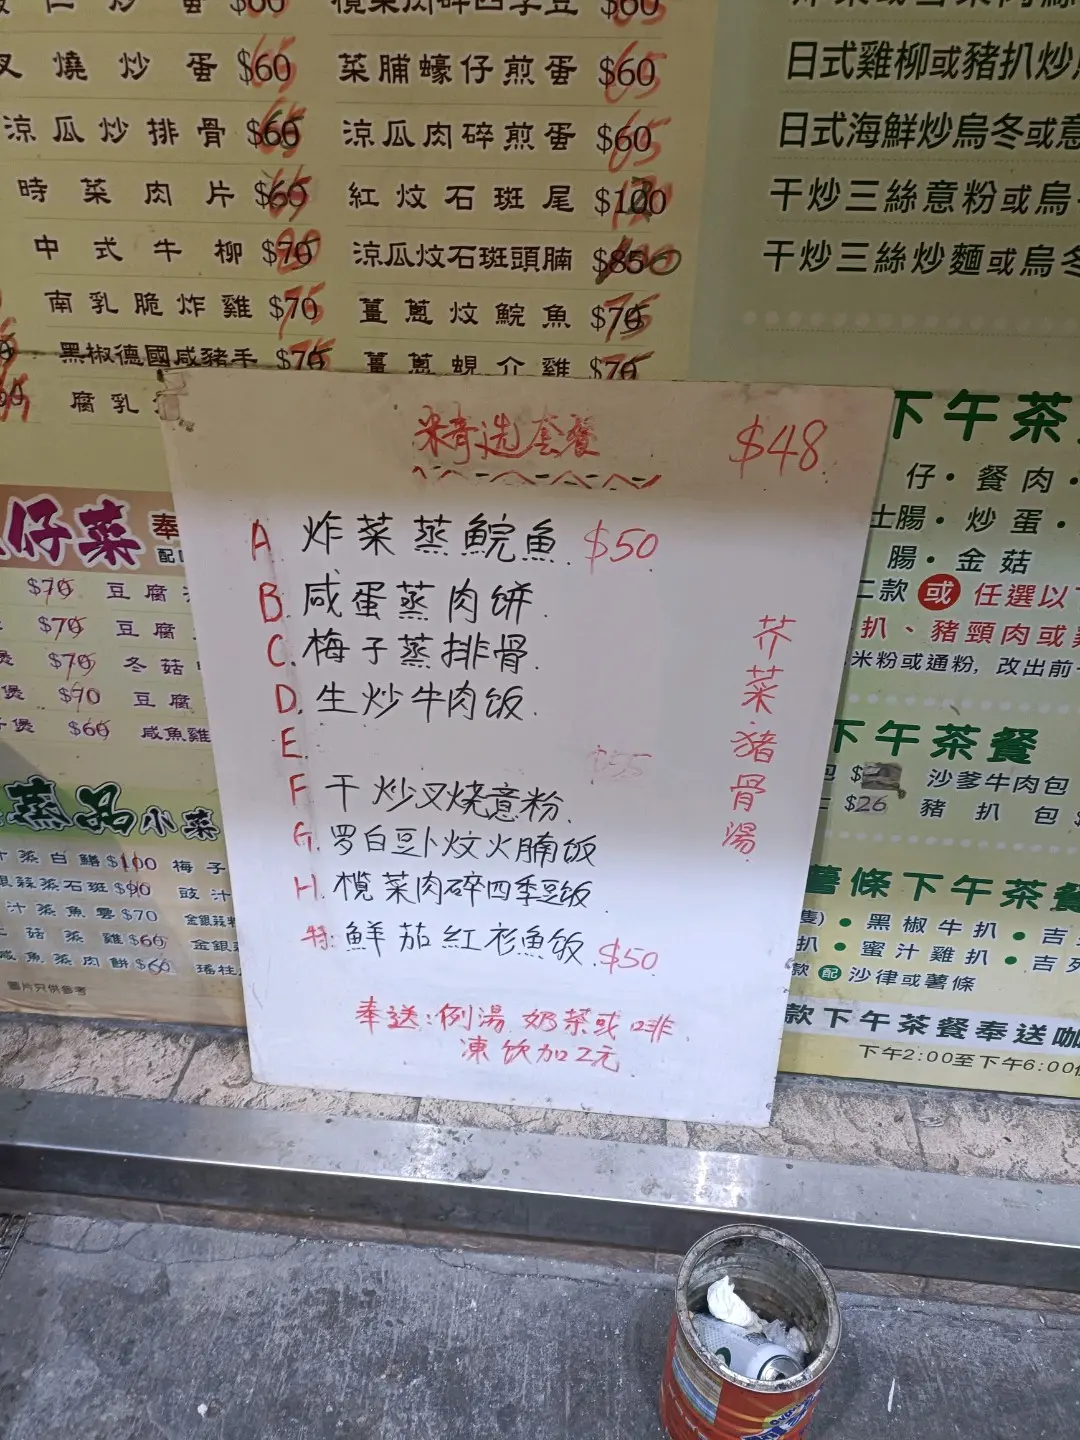 炒蛋 $60
欖菜肉碎四季豆 $60
燒炒蛋 $60 65
菜脯蠔仔煎蛋 $60 65
涼瓜炒排骨 $60 65
涼瓜肉碎煎蛋 $60 65
時菜肉片 $60 65
紅炆石斑尾
中式牛柳 $70
涼瓜炆石斑頭腩 $85
南乳脆炸雞 $70 75
薑蔥炆鯇魚 $70 75
黑椒德國咸豬手 $70 75
薑蔥蜆介雞 $70
腐乳
日式雞柳或豬扒炒
日式海鮮炒烏冬或意
干炒三絲意粉或烏
干炒三絲炒麵或烏冬
精选套餐 $48
A 炸菜蒸鯇魚 $50
B. 咸蛋蒸肉饼
C. 梅子蒸排骨
D. 生炒牛肉饭
E. $55
F 干炒叉烧意粉
G. 罗白豆卜炆火腩饭
H. 榄菜肉碎四季豆饭
特: 鮮茄紅衫魚饭 $50
芥菜猪骨湯
奉送:例湯 奶茶或啡
凍饮加2元
仔菜 奉
配
$70 豆腐
$70 豆腐
煲 $70 冬菇
煲 $90 豆腐
煲 $60 咸魚雞
蒸品小菜
蒸白鱔 $100 梅子
銀蒜蒸石斑 $90 豉汁
汁蒸魚雲 $70 金銀蒜
菇蒸雞 $60 金銀
咸魚蒸肉餅 $60 瑤柱
圖片只供參考
下午茶
仔・餐肉・
士腸・炒蛋・
腸・金菇
二款 或 任選以下
扒、豬頸肉或
米粉或通粉, 改出前一
下午茶餐
包 $ 沙爹牛肉包
$26 豬扒包 $
薯條下午茶餐
隻) • 黑椒牛扒 • 吉
扒 • 蜜汁雞扒 • 吉列
款 配 沙律或薯條
款下午茶餐奉送咖
下午2:00至下午6:00